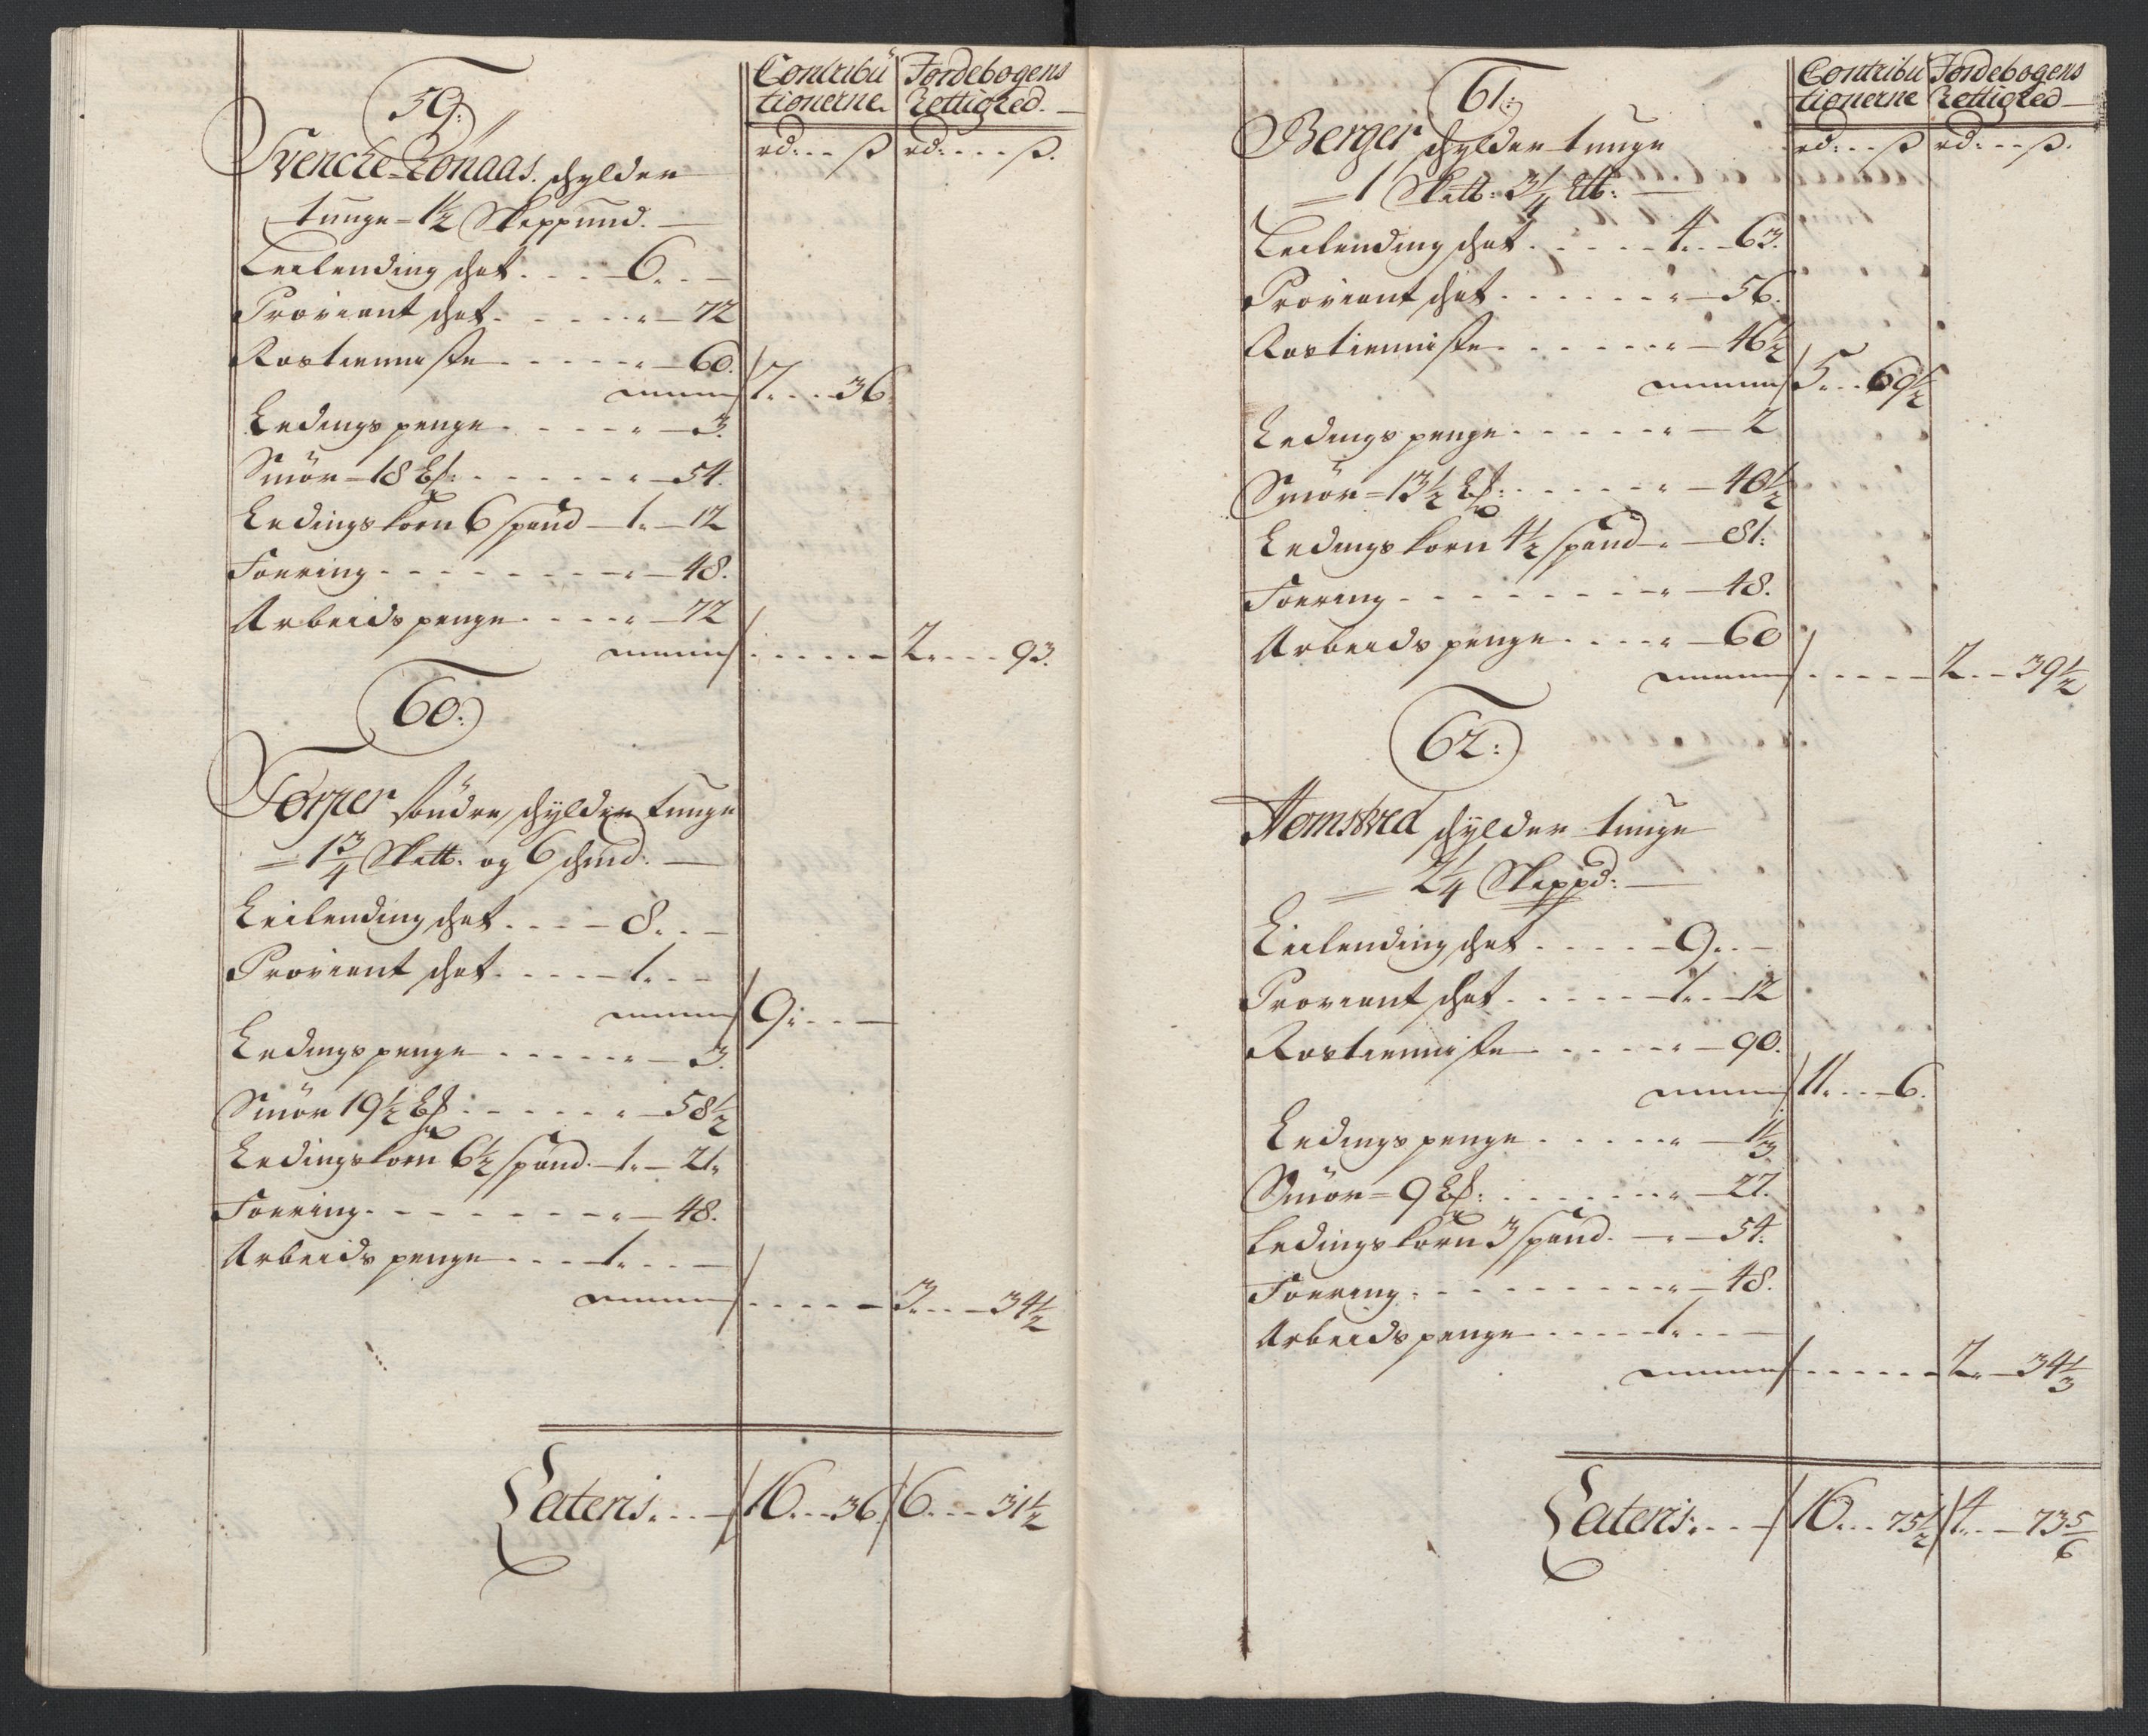 Contribu Jordebogens
tionerne. Rettighed.
rd: ß rd: ß.
59.
Svencke-Rönaas. schylder
tunge - 1½ Skeppund.
Leilending schat . . . 6 . . —
Proviant schat . . . . . „ — 72
Rostieniste . . . . . „ — 60.
7 . . . 36.
Ledings penge . . . . „ — 3.
Smör — 18 . . . . . „ — 54.
Ledings korn 6 spand — 1. — 12
Foering . . . . . . . . „ — 48.
Arbeids penge . . . . „ — 72
. . . . . 2 . . . . 93.
60.
Torper söndre, schylder tunge
= 1¾ Sk℔. og 6 schind.
Leilending schat . . . . 8 . . —
Proviant schat . . . . . 1 . . —
9 . . . —
Ledings penge . . . . . „ — 3.
Smör 19½ . . . . . . „ — 58½
Ledings korn 6½ spand. — 1. — 21.
Foering . . . . . . . . „ — 48.
Arbeids penge . . . 1 . . . —
. . . . . 3 . . . . 34½
Lateris . . . 16 . . . 36. 6 . . . 31½
Contribu Jordebogens
tionerne Rettighed
rd: ß rd: ß.
61.
Berger schylder tunge
= 1 Sk℔: 3¼ L℔:
Leilending schat . . . . . 4 . . 63.
Proviant schat . . . . . . „ — 56.
Rostieniste . . . . . . „ — 46½
5 . . 69½
Ledings penge . . . . . „ — 2
Smör = 13½ . . . . . „ — 40½
Ledings korn 4½ spand „ — 81.
Foering . . . . . . . . „ — 48.
Arbeids penge . . . . „ — 60
. . . . . 2 . . 39½
62:
Homsted schylder tunge
= 2¼ Skeppd:
Leilending schat . . . . . 9 . . —
Proviant schat . . . . . 1 . . 12
Rostieniste . . . . . „ — 90.
11 . . . 6.
Ledings penge . . . . . „ — 1⅓
Smör = 9 . . . . . . „ — 27.
Ledings korn 3 spand. — „ — 54.
Foering . . . . . . . . „ — 48.
Arbeids penge . . . . . 1 . . . —
. . . . . 2. — 34⅓
Lateris: . . . 16 . . . 75½ 4 . . . 73⅚